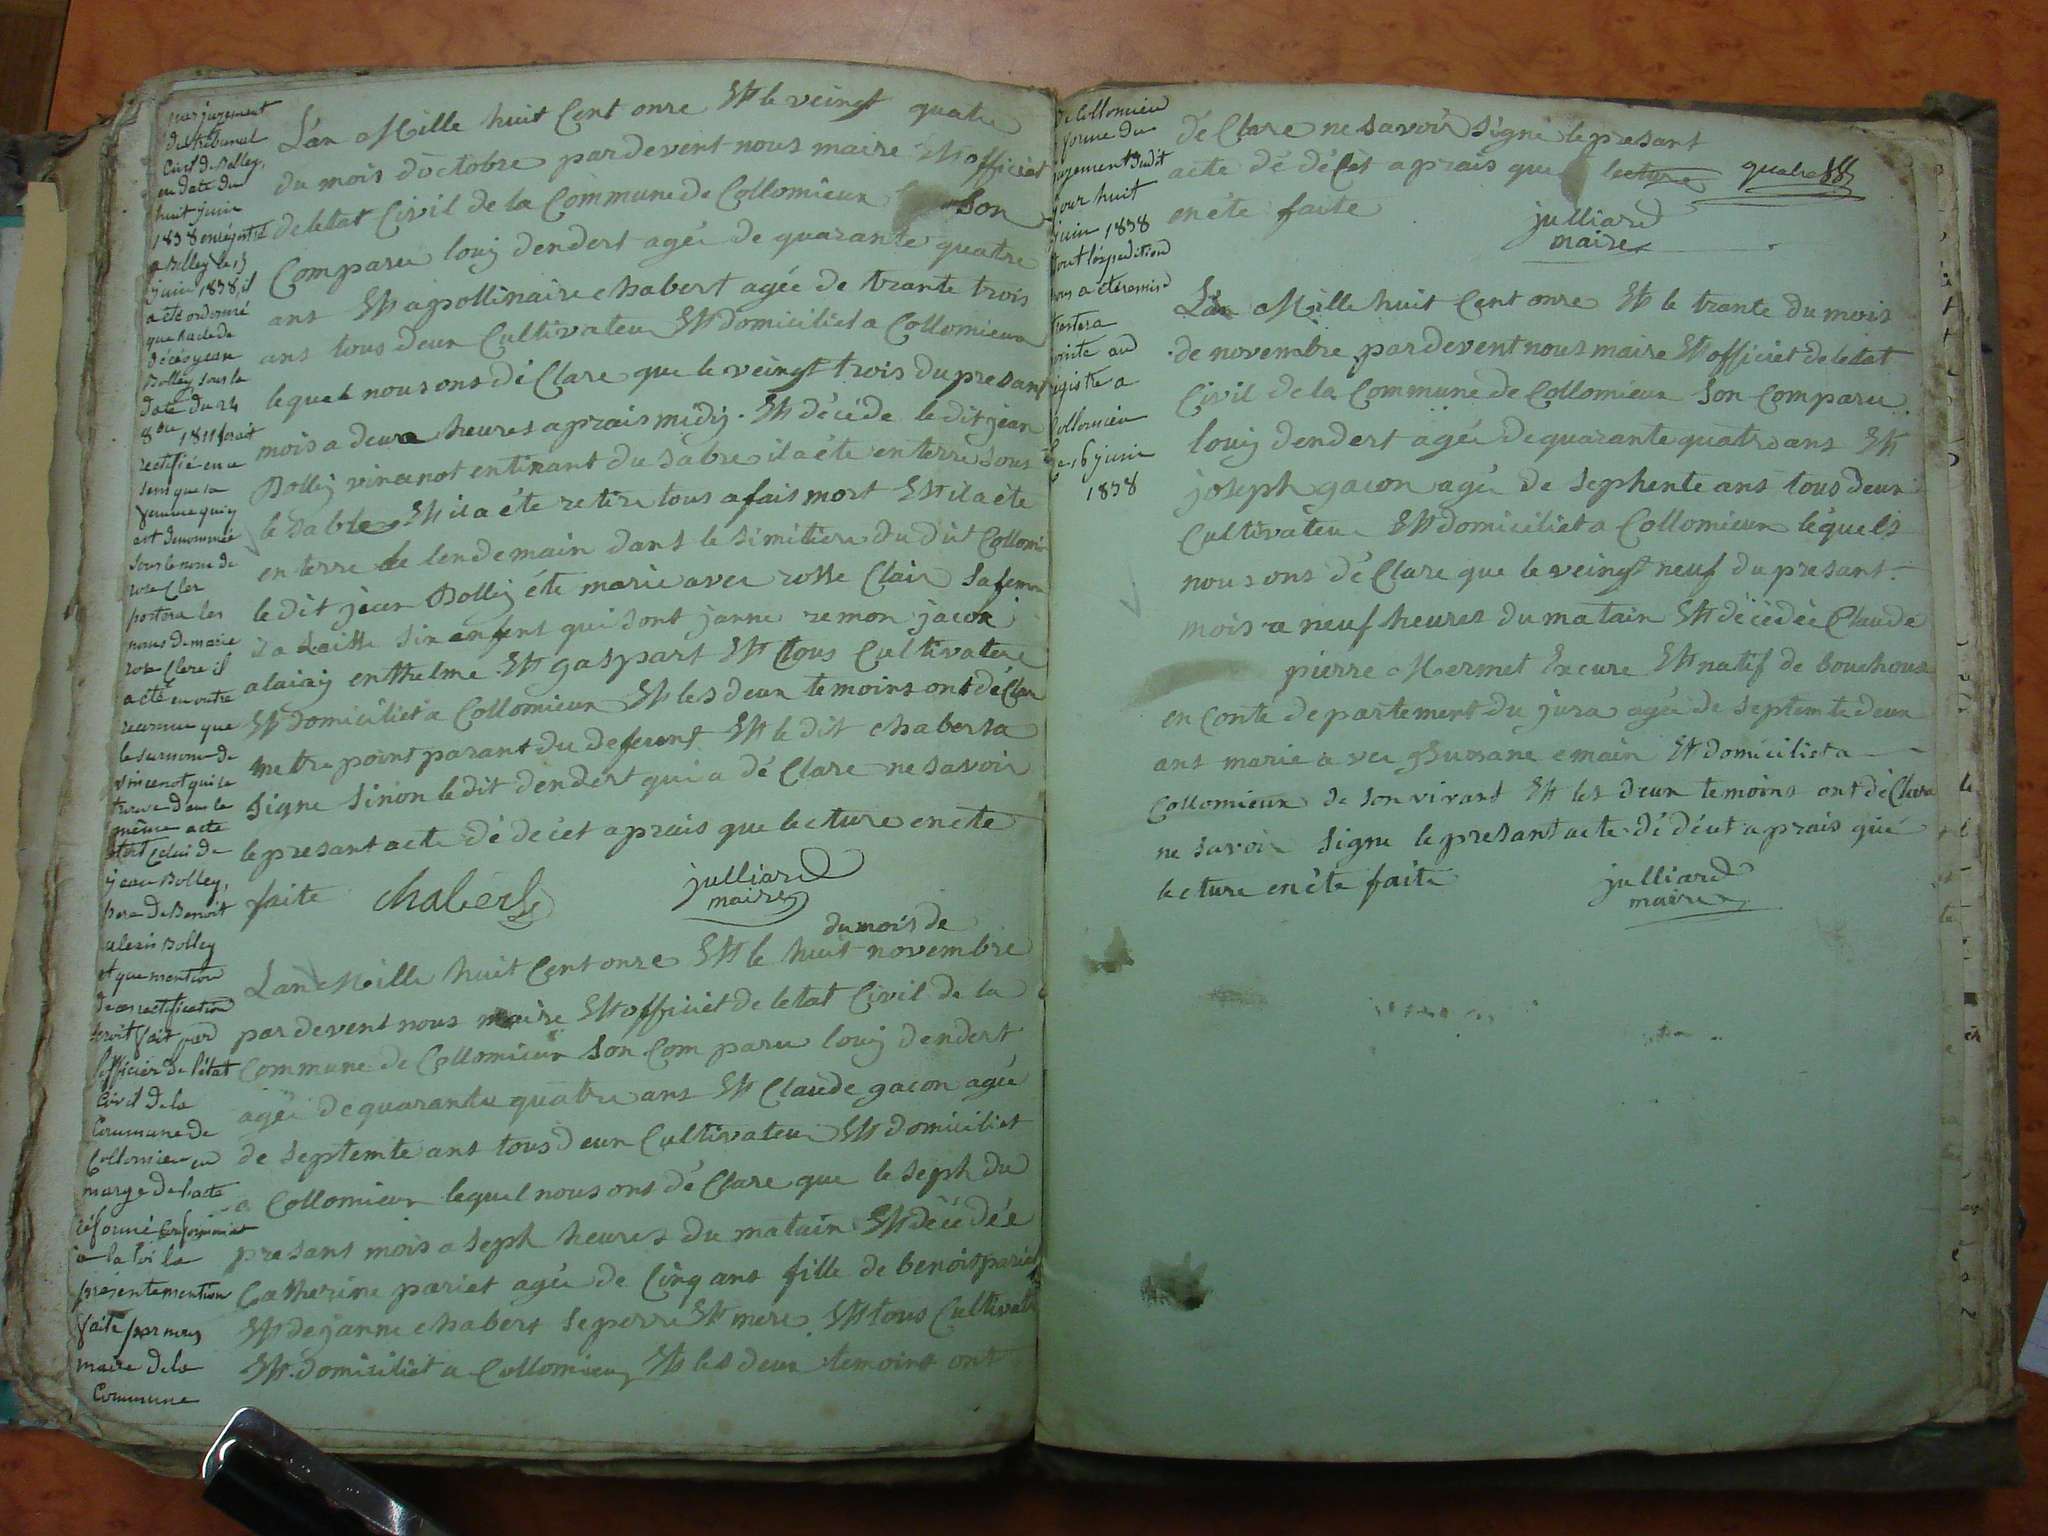 par jugement
du tribunal
Civil de Belley,
en date du
huit juin
1838 enregistré
a Belley le 13
juin 1838, il
a été ordonné
que l'acte de
décés jean
Bolley sous la
date du 24
8bre 1811 serait
rectifié en ce
sens que sa
femme qui y
est denommée
sous le nom de
rose Cler
portera les
noms de marie
rose Clere il
a été en outre
reconnu que
le surnom de
vincenot qui se
trouve dans le
même acte
etoit celui de
jean Bolley,
pere de Benoit
alexis Bolley
et que mention
de ces rectification
seroit fait par
l'officier de l'état
Civil de la
Commune de
Collomieu en
marge de l'acte
réformé conformement
a la loi la
présente mention
faite par nous
maire de la
Commune
L'an Mille huit Cent onze Et le veingt quatre
du mois d'octobre pardevent nous maire Et officiet
de letat Civil de la Commune de Collomieux Son
Comparu louij dendert agée de quarante quatre
ans Et apollinaire chabert agée de trante trois
ans tous deux Cultivateu Et domiciliet a Collomieux
lequel nous ons dé Clare que le veingt trois du presant
mois a deux heures aprais midij. Et décéde le dit jean
Bollij vincenot entirant du sable il a éte enterre sous
le sable Et il a éte retire tous a fais mort Et il a éte
enterre le lendemain dans le simitiere du dit Collomi
le dit jean Bollij éte marie avec rosse Clair sa femme
i a laisse six enfens qui sont janne remon jacox
alaixij enthelme Et gaspart Et tous Cultivateu
Et domiciliet a Collomieux Et les deux temoins ons dé Clare
netre point parant du defeunt Et le dit chabert a
signe sinon le dit dendert qui a dé Clare ne savoir
le presant acte dé decet aprais que lecture en éte
faite chabert julliard
maire
du mois de
Lan Mille huit Cent onze Et le huit novembre
pardevent nous maire Et officiet de letat Civil de la
Commune de Collomieux Son Comparu louij dendert
agée de quarante quatre ans Et Claude gacon agée
de septemte ans tous deux Cultivateu Et domiciliet
a Collomieux lequel nous ons dé Clare que le seph du
presant mois a seph heures du matain Et décédée
Catherine pariet agée de Cinq ans fille de benoit pariet
Et de janne chabert se perre Et mere Et tous Cultivate
Et domiciliet a Collomieux Et les deux temoins ont
de Collomieu
forme du
jugement dudit
jour huit
juin 1838
dont l'expedition
nous a été remise
restera
jointe au
registre a
Collomieu
le 16 juin
1838
dé Clare ne savoir signe le presant
acte dé décet aprais que lecture quatre
en éte faite
julliard
maire
Lan Mille huit Cent onze Et le trante du mois
de novembre pardevent nous maire Et officiet de letat
Civil de la Commune de Collomieux Son Comparu
louij dendert agée de quarante quatre ans Et
joseph gacon agée de sephente ans tous deux
Cultivateu Et domiciliet a Collomieux lequels
nous ons dé Clare que le veingt neuf du presant
mois a neuf heures du matain Et décédée Claude
pierre Mermet Excure Et natif de bouchoux
en Conte departement du jura agée de septemte deux
ans marie avec Susane emain Et domiciliet a
Collomieux de son vivant Et les deux temoins ont dé Clare
ne savoir signe le presant acte dé décet aprais que
lecture en éte faite julliard
maire